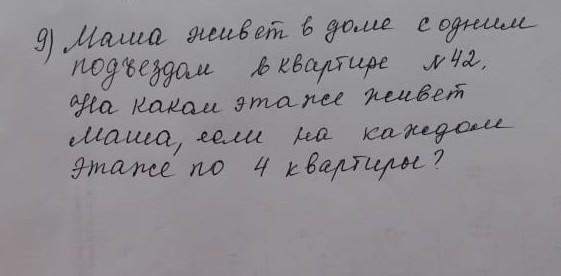 9) Маша живет в доме с одним
подъездом в квартире №42.
На каком этаже живет
Маша, если на каждом
этаже по 4 квартиры?